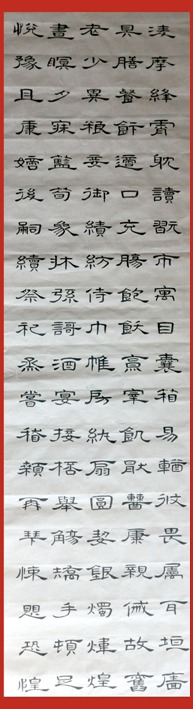 凌摩絳霄耽讀翫市寓目囊箱易輶攸畏屬耳垣牆
具膳餐飯適口充腸飽飫烹宰飢厭糟糠親戚故舊
老少異糧妾御績紡侍巾帷房紈扇圓絜銀燭煒煌
晝瞑夕寐藍筍象牀弦謌酒宴接杯舉觴矯手頓足
悅豫且康嫡後嗣續祭祀烝嘗稽顙再拜悚懼恐惶